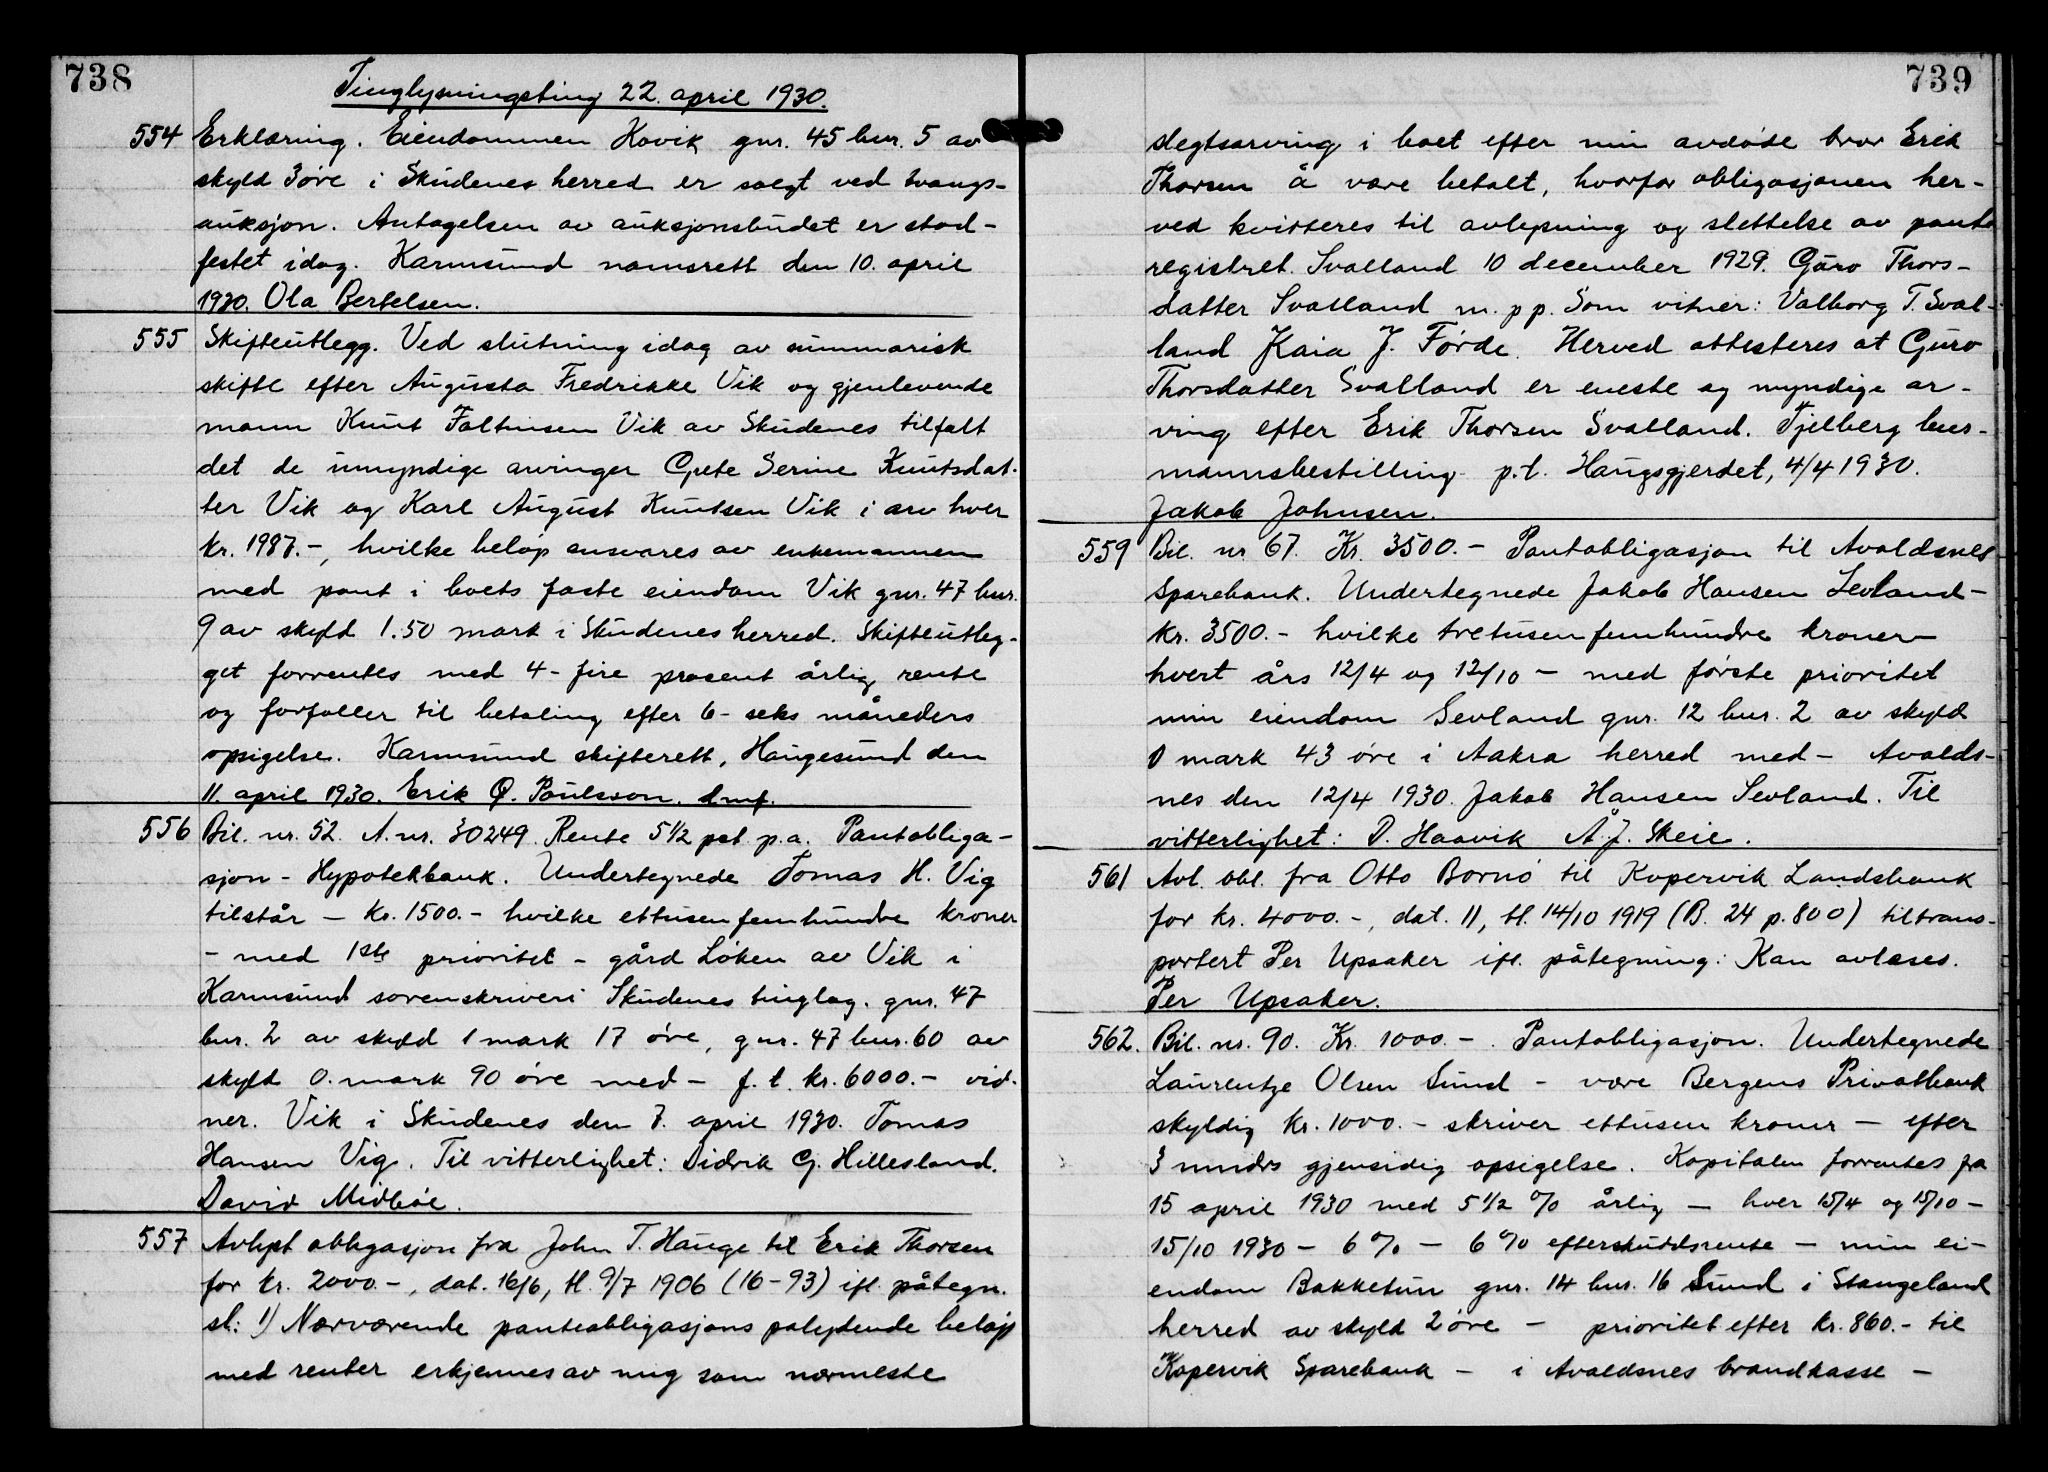 738
Tinglysningsting 22. april 1930.
554 Erklæring. Eiendommen Hovik gnr. 45 bnr. 5 av
skyld 3 øre i Skudenes herred er solgt ved tvangs-
auksjon. Antagelsen av auksjonsbudet er stad-
festet idag. Karmsund namsrett den 10. april
1930. Ola Bertelsen.
555 Skifteutlegg. Ved slutning idag av summarisk
skifte efter Augusta Fredrikke Vik og gjenlevende
mann Knut Faltinsen Vik av Skudenes tilfalt
det de umyndige arvinger Grete Serine Knutsdat-
ter Vik og Karl August Knutsen Vik i arv hver
kr. 1987.-, hvilke beløp ansvares av enkemannen
med pant i boets faste eiendom Vik gnr. 47 bnr.
9 av skyld 1.50 mark i Skudenes herred. Skifteutleg-
get forrentes med 4 - fire prosent årlig rente
og forfaller til betaling efter 6 - seks måneders
opsigelse. Karmsund skifterett, Haugesund den
11. april 1930. Erik Q. Poulsson. dmf.
556 Bil. nr. 52. A. nr. 30249. Rente 5 1/2 pct. p.a. Pantobliga-
sjon - Hypotekbank. Undertegnede Tomas H. Vig
tilstår - kr. 1500.- hvilke ettusenfemhundre kroner
- med 1ste prioritet - gård Løken av Vik i
Karmsund sorenskriveri Skudenes tinglag. gnr. 47
bnr. 2 av skyld 1 mark 17 øre, gnr. 47 bnr. 60 av
skyld 0. mark 90 øre med - f. t. kr. 6000.- vid-
ner. Vik i Skudenes den 7. april 1930. Tomas
Hansen Vig. Til vitterlighet: Didrik G. Hillesland.
David Midbøe.
557 Avlyst obligasjon fra John T. Hauge til Erik Thorsen
for kr. 2000.-, dat. 16/6, tl. 9/7 1906 (16-93) ifl. påtegn.
sl: 1) Nærværende panteobligasjons pålydende beløp
med renter erkjennes av mig som nærmeste
739
slegtsarving i boet efter min avdøde bror Erik
Thorsen å være betalt, hvorfor obligasjonen her-
ved kvitteres til avlysning og slettelse av pante
registret. Svalland 10 december 1929. Guro Thors-
datter Svalland m. p p. Som vitner: Valborg T. Sval-
land Kaia J. Førde. Herved attesteres at Guro
Thorsdatter Svalland er eneste og myndige ar-
ving efter Erik Thorsen Svalland. Fjelberg lens-
mannsbestilling p.t. Haugsgjerdet, 4/4 1930.
Jakob Johnsen.
559 Bil. nr 67. Kr. 3500.- Pantobligasjon til Avaldsnes
Sparebank. Undertegnede Jakob Hansen Sevland -
kr. 3500.- hvilke tretusenfemhundre kroner -
hvert års 12/4 og 12/10 - med første prioritet
min eiendom Sevland gnr. 12 bnr. 2 av skyld
0 mark 43 øre i Aakra herred med - Avalds-
nes den 12/4 1930. Jakob Hansen Sevland. Til
vitterlighet: D. Haavik A. J. Skeie.
561 Avl. obl. fra Otto Bornø til Kopervik Landsbank
for kr. 4000.-, dat. 11, tl. 14/10 1919 (B. 24 p. 800) tiltrans-
portert Per Upsaker ifl. påtegning: Kan avlæses.
Per Upsaker.
562. Bil. nr. 90. Kr. 1000.-. Pantobligasjon. Undertegnede
Laurentze Olsen Sund - være Bergens Privatbank
skyldig kr. 1000.- skriver ettusen kroner - efter
3 mndrs gjensidig opsigelse. Kapitalen forrentes fra
15 april 1930 med 5 1/2 % årlig - hver 15/4 og 15/10 -
15/10 1930 - 6 % - 6 % efterskuddsrente - min ei-
endom Bakketun gnr. 14 bnr. 16 Sund i Stangeland
herred av skyld 2 øre - prioritet efter kr. 860.- til
Kopervik Sparebank - i Avaldsnes brandkasse -